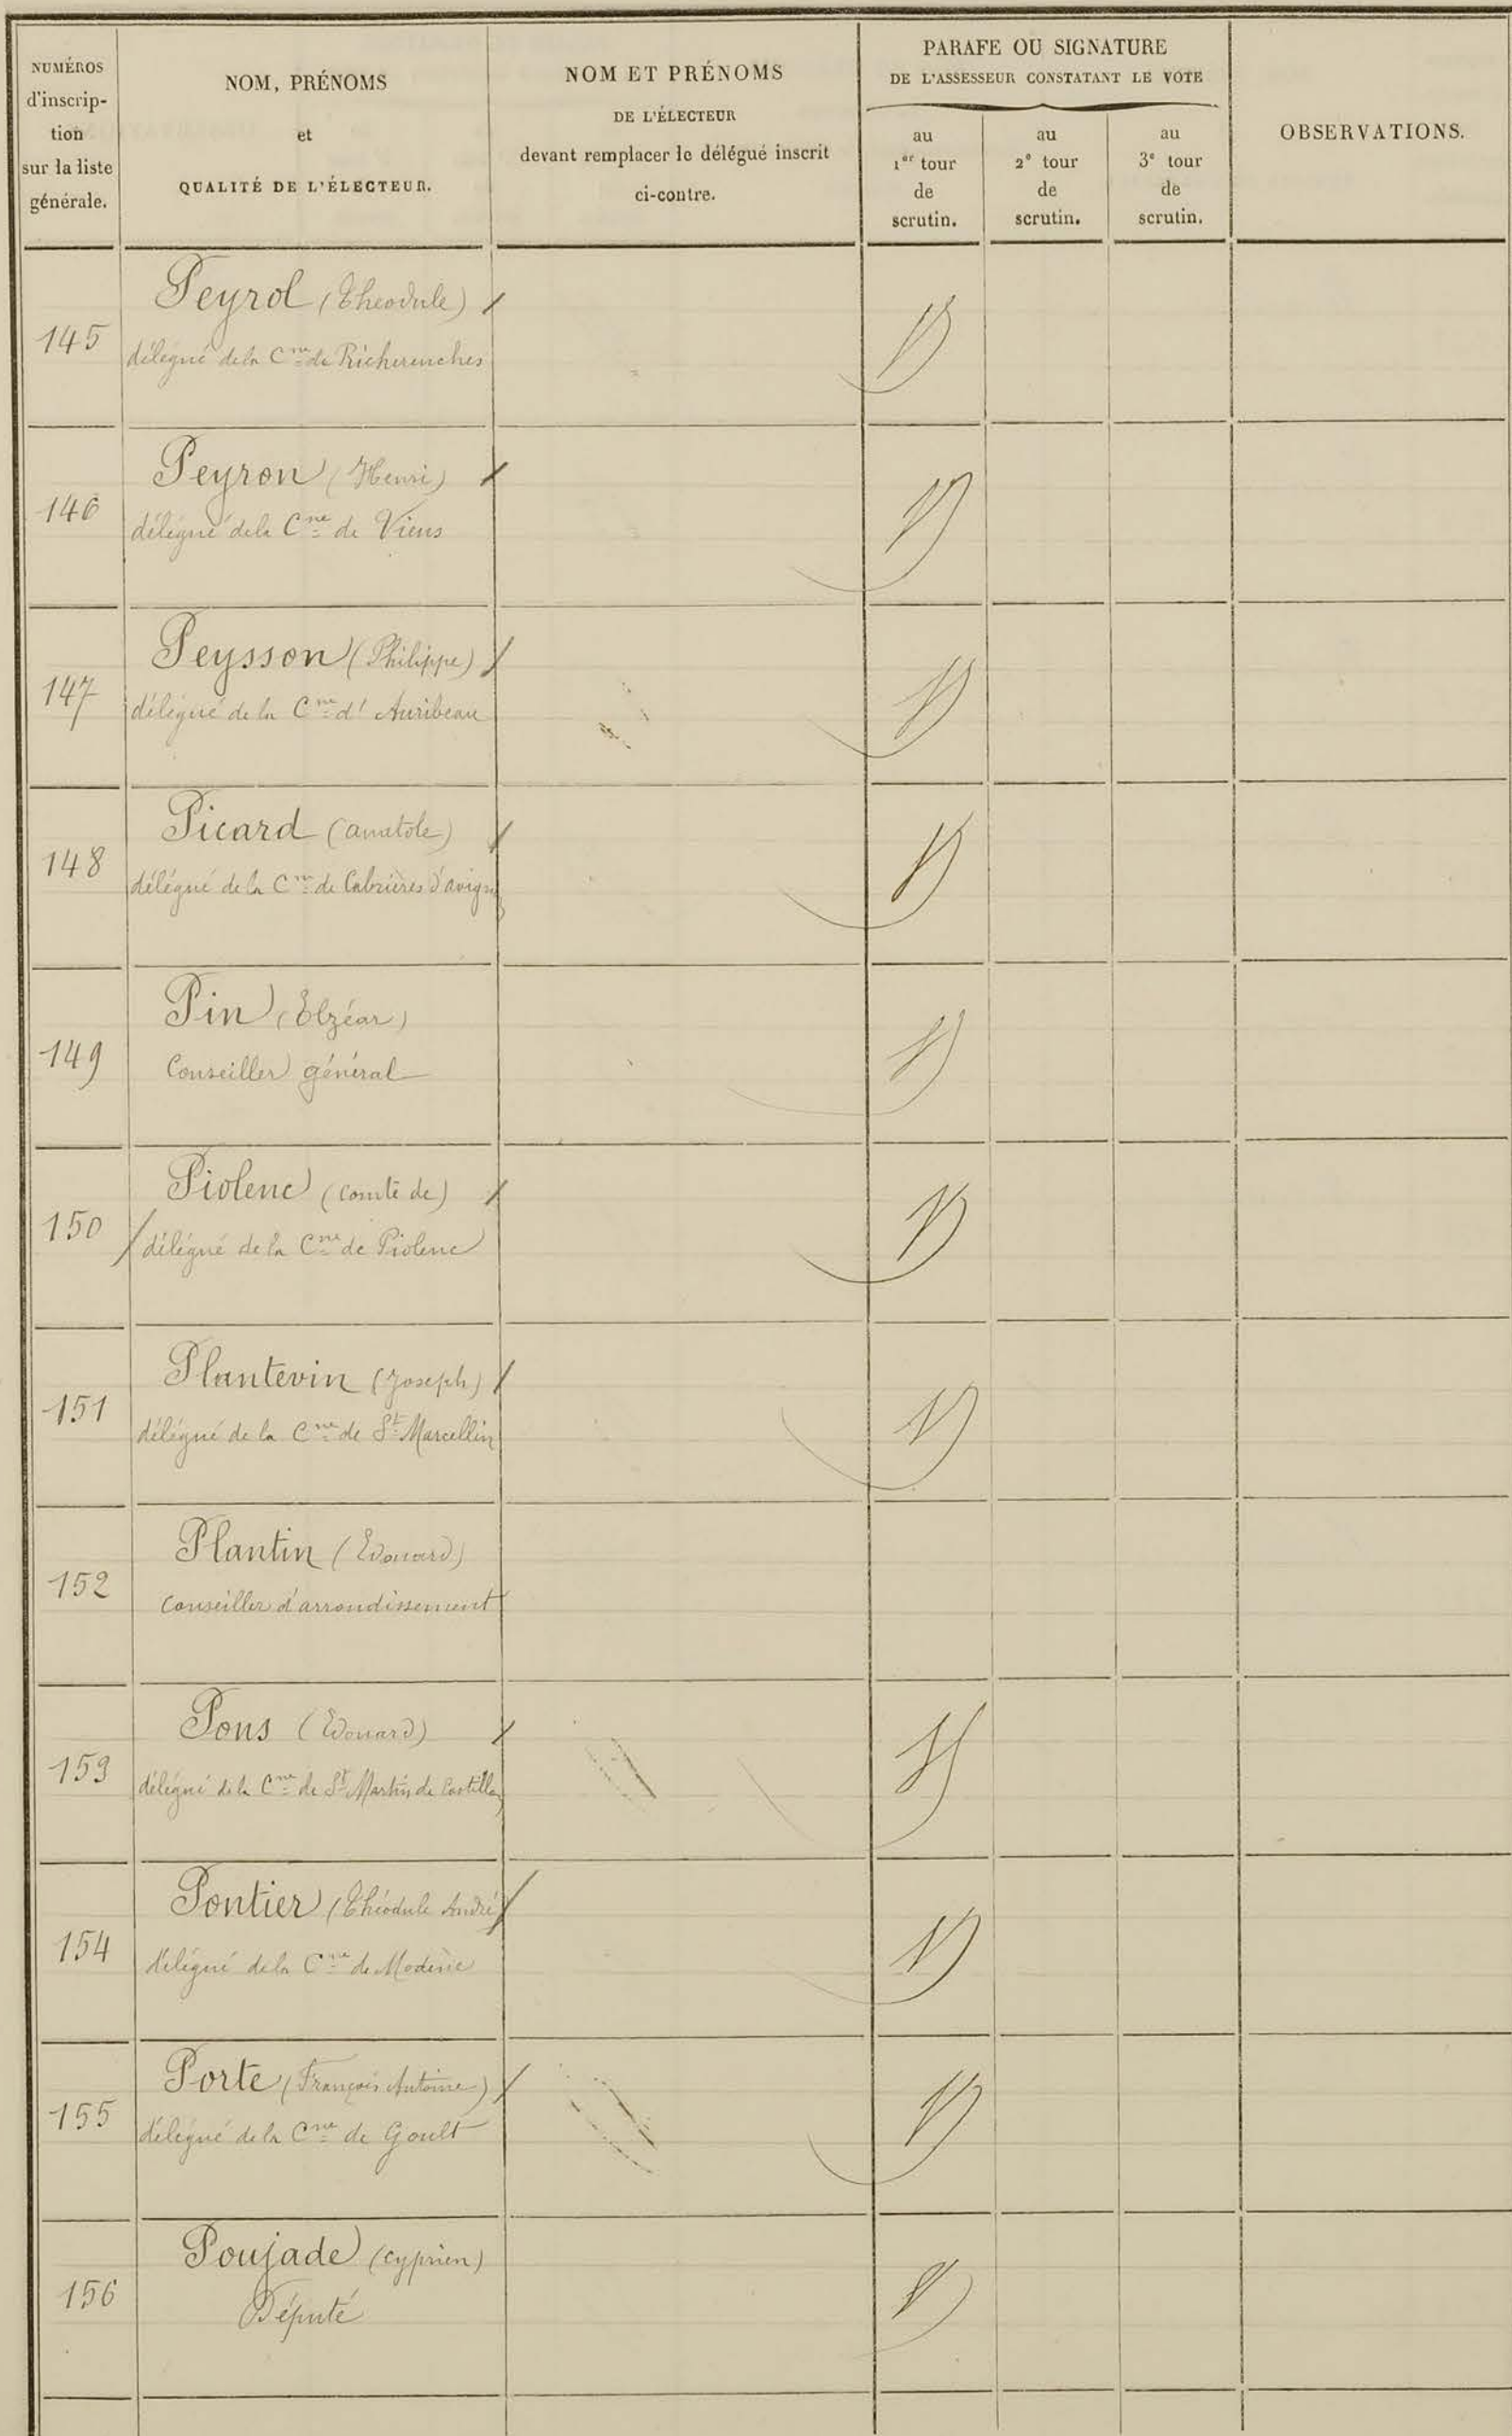 NUMÉROS
d'inscrip-
tion
sur la liste
générale.
NOM, PRÉNOMS
et
QUALITÉ DE L'ÉLECTEUR.
NOM ET PRÉNOMS
DE L'ÉLECTEUR
devant remplacer le délégué inscrit
ci-contre.
PARAFE OU SIGNATURE
DE L'ASSESSEUR CONSTATANT LE VOTE
au
1er tour
de
scrutin.
au
2e tour
de
scrutin.
au
3e tour
de
scrutin.
OBSERVATIONS.
145
Peyrol (Théodule)
délégué de la Cne de Richerenches
146
Peyron (Henri)
délégué de la Cne de Viens
147
Peysson (Philippe)
délégué de la Cne d'Auribeau
148
Picard (Anatole)
délégué de la Cne de Cabrières d'avignon
149
Pin (Elzéar)
Conseiller général
150
Piolenc (comte de)
délégué de la Cne de Piolenc
151
Plantevin (Joseph)
délégué de la Cne de St Marcellin
152
Plantin (Edouard)
Conseiller d'arrondissement
153
Pons (Edouard)
délégué de la Cne de St Martin de Castillon
154
Pontier (Théodule André)
délégué de la Cne de Modène
155
Porte (François Antoine)
délégué de la Cne de Goult
156
Poujade (Cyprien)
Député